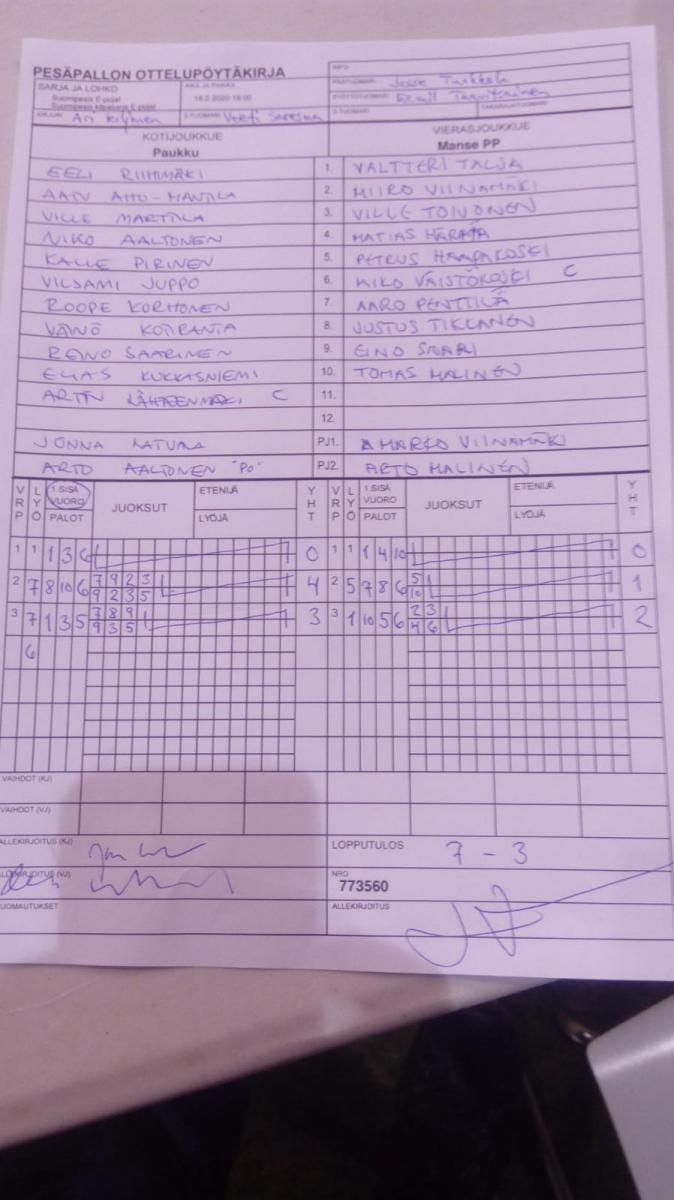 PESÄPALLON OTTELUPÖYTÄKIRJA
INFO
SARJA JA LOHKO
Suomipesis E-pojat
AIKA JA PAIKKA
16.2.2020 16:00
Jesse
KOTIJOUKKUE
VIERASJOUKKUE
Paukku
Manse PP
EELI RIIHIMÄKI 1. VALTTERI TALJA
AATU AHO-MANTILA 2. MIIRO VIINAMÄKI
VILLE MARTTILA 3. VILLE TOIVONEN
NIKO AALTONEN 4. MATIAS
KALLE PIRINEN 5. PETRUS HAAPAKOSKI
VILJAMI JUPPO 6. NIKO VAISTÖKOSKI C
ROOPE KORHONEN 7. AARO PENTTILÄ
VÄINÖ KOIRANTA 8. JUSTUS TIKKANEN
REINO SAARINEN 9. EINO
ELIAS KUKKASNIEMI 10. TOMAS MALINEN
ARTTU LÄHTEENMÄKI C 11.
12.
JONNA LATVALA PJ1. MARKO VIINAMÄKI
ARTO AALTONEN "PO" PJ2. ARTO MALINEN
VRP LYÖ 1.SISÄ VUORO PALOT JUOKSUT ETENIJÄ LYÖJÄ YHT VRP LYÖ 1.SISÄ VUORO PALOT JUOKSUT ETENIJÄ LYÖJÄ YHT
1 1 1 3 6 0 1 1 1 4 10 0
2 7 8 10 6 7 9 2 3 4 2 5 7 8 6 5 1
9 2 3 5 10
3 7 1 3 5 7 8 9 3 3 1 10 5 6 2 3 2
9 3 5 4 6
6
VAIHDOT (KJ)
VAIHDOT (VJ)
ALLEKIRJOITUS (KJ) LOPPUTULOS 7 - 3
ALLEKIRJOITUS (VJ) NRO
773560
HUOMAUTUKSET ALLEKIRJOITUS